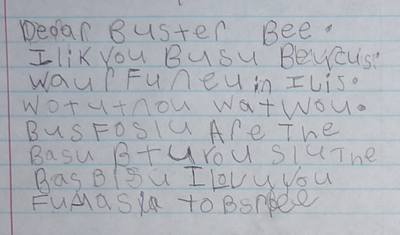 Dedar Buster Bee.
I lik you Busu Beurcus.
waur Funeu in ILis.
wotutnou watwou.
BusFoslu Are The
Basu B+uyou slu The
BasBisu I Lovuyou
Fumasla to Bsree